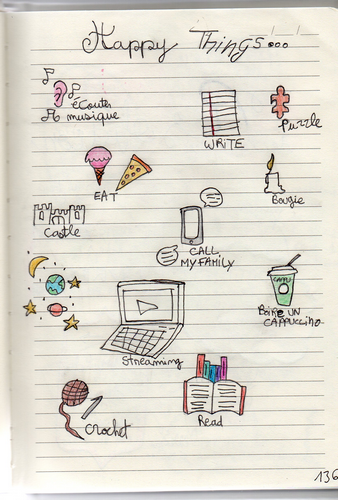 Happy Things...
écouter
musique
WRITE
Puzzle
EAT
Bougie
Castle
CALL
MY FAMILY
CAPPU
BOIRE UN
CAPPUCCINO
Streaming
Crochet
Read
136